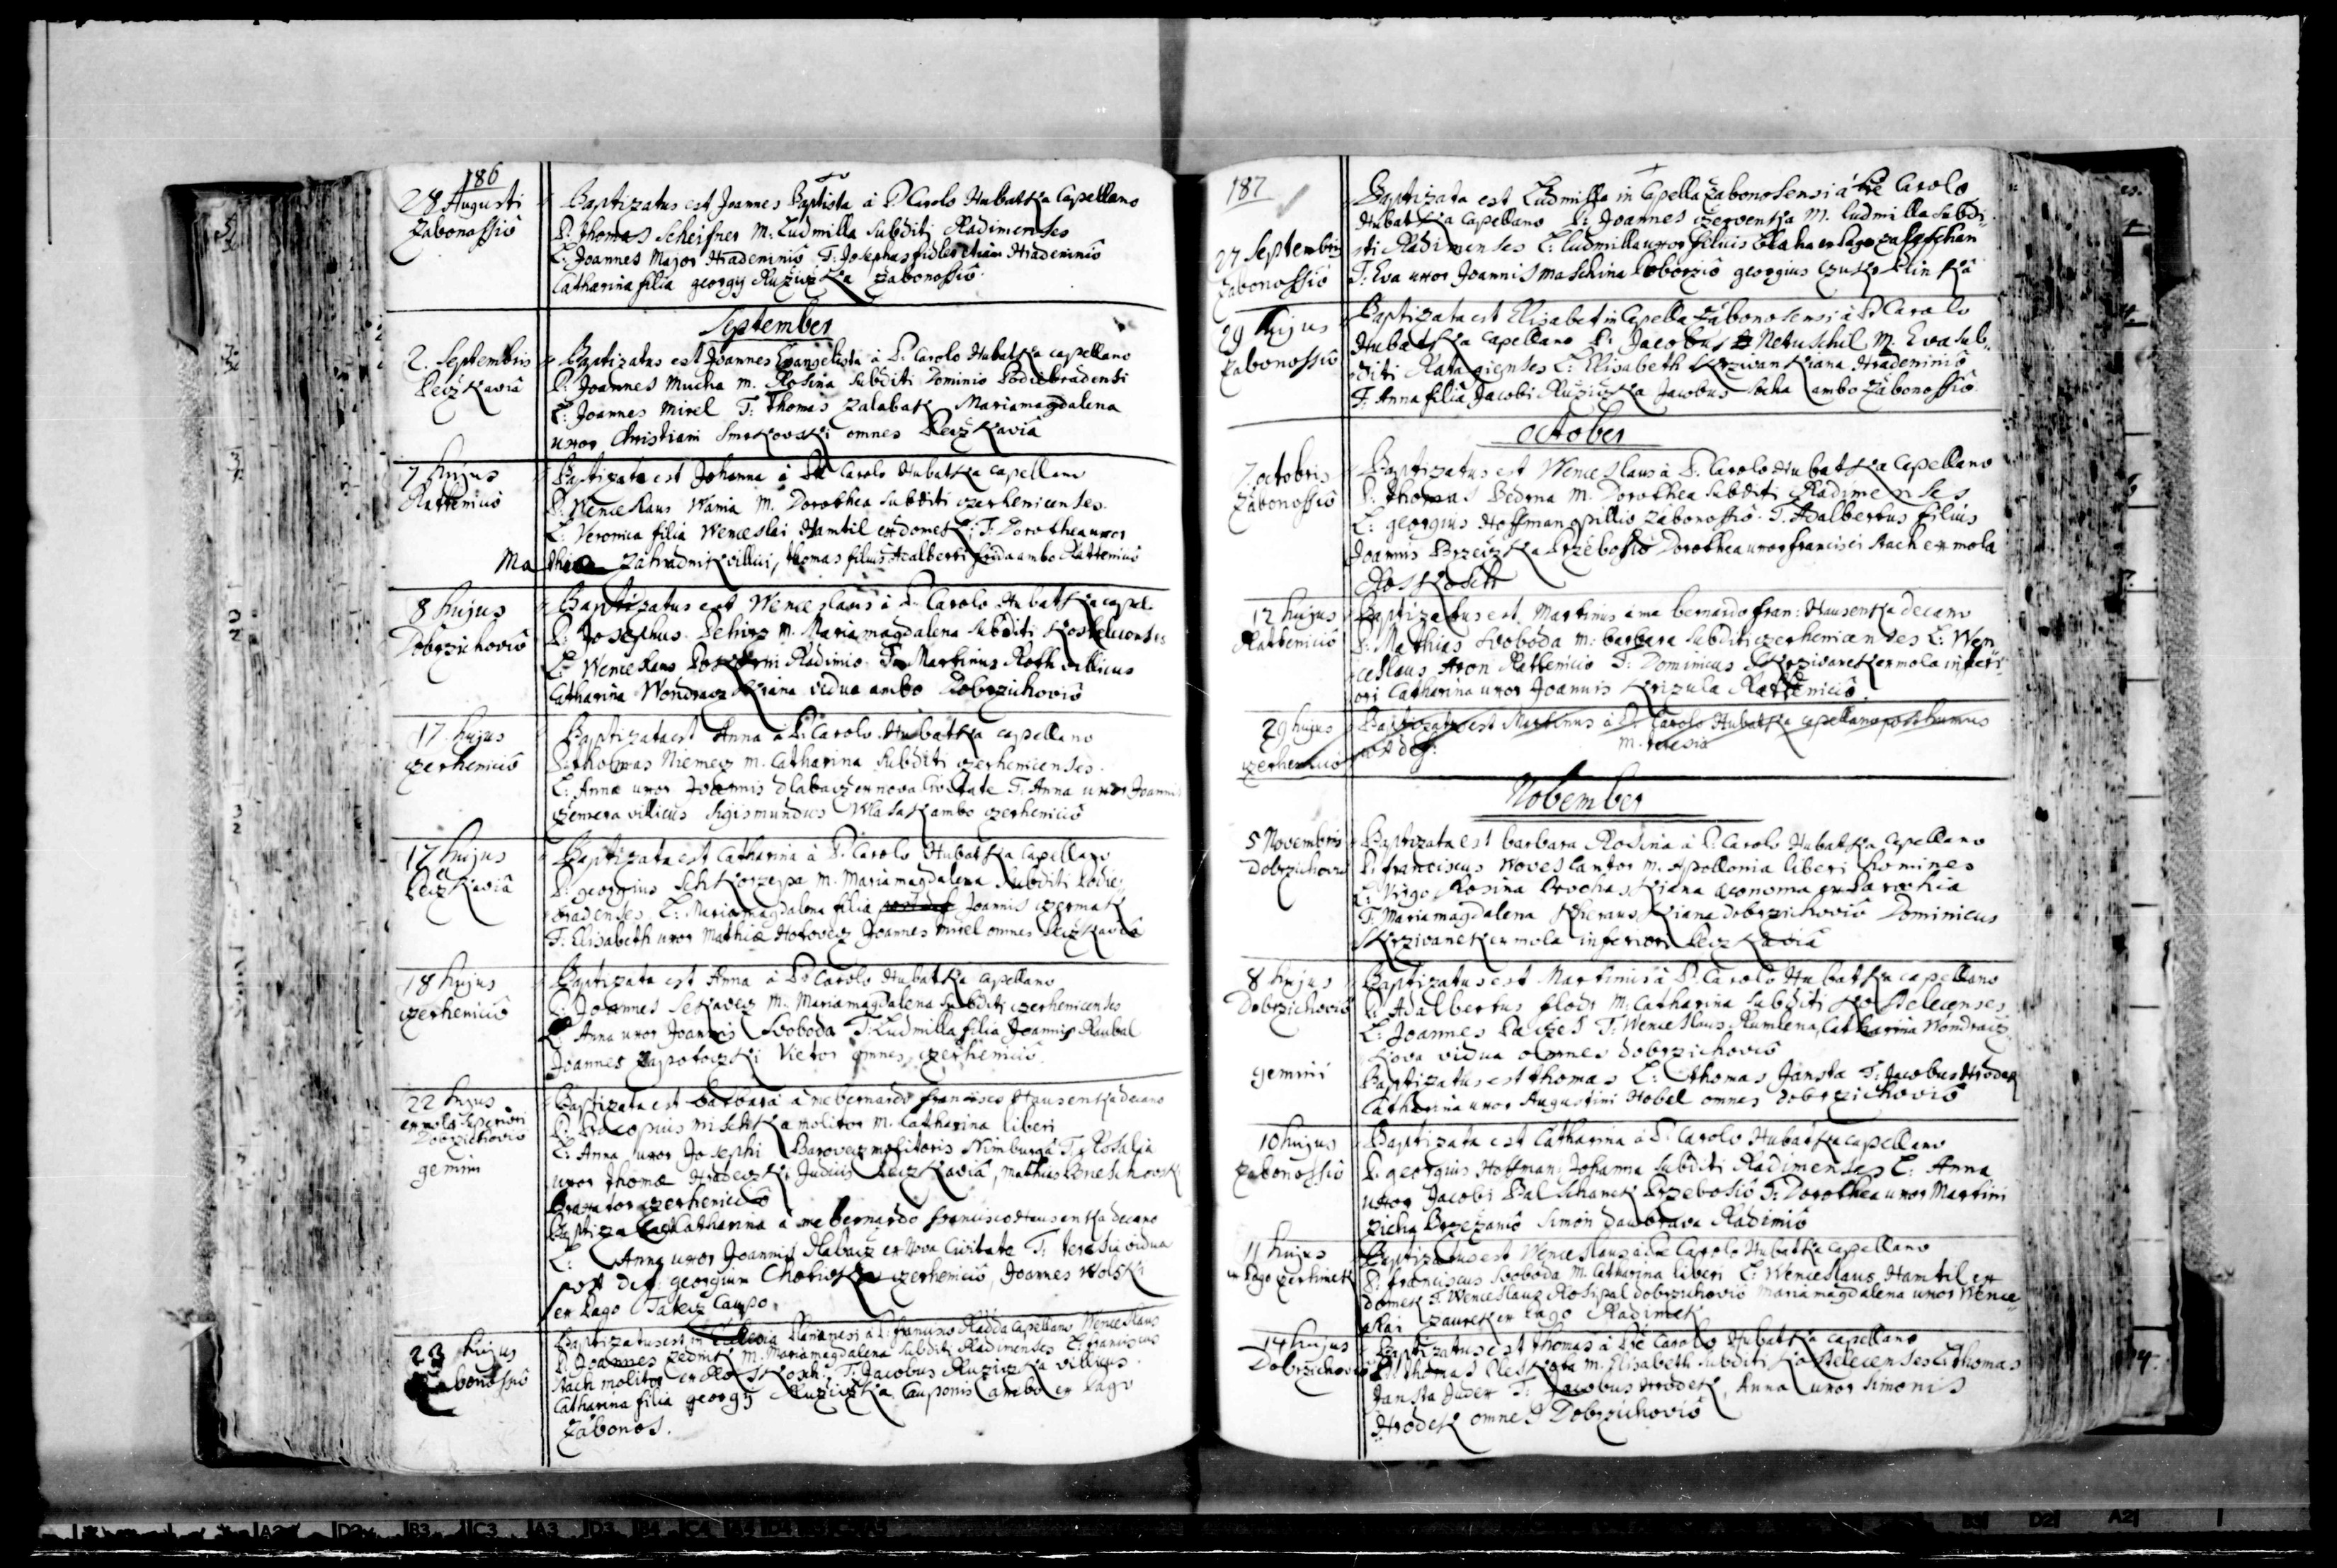 186
28 Augusti
Zabonossiô
Baptizatus est Joannes Baptista à P. Carolo Hubatka Capellano
P. Thomas Scheifner M: Ludmilla Subditi Radimenses
L: Joannes Major Hradeniniô T: Josephus fidler etiam Hradeniniô
Catharina filia georgij Ružiczka Zabonossiô
September
2. Septembris
Peczkaviâ
Baptizatus est Joannes Evangelista à P. Carolo Hubatka capellano
P. Joannes Mucha m. Rosina Subditi Dominio Podiebradensi
L: Joannes Mirel T: Thomas Zalabak Mariamagdalena
uxor Christiani Smrkovski omnes Peczkaviâ
7 hujus
Rattenicio
Baptizata est Johanna à P. Carolo Hubatka capellano
P. Wenceslaus Wania M. Dorothea Subditi czerhenicenses.
L: Veronica filia Wenceslai Hamtil ex domek T: Dorothea uxor
Ma thiæ Zahradnik villici, thomas filius Adalberti ambo Rattenicio
8 hujus
Dobrzichoviô
Baptizatus est Wenceslaus à P. Carolo Hubatka capel.
P. Josephus M. Mariamagdalena Subditi Kostelecenses
L: Wenceslaus Radimio T: Martinus Roth villicus
Catharina Wondraczkiana vidua ambo Dobrzichoviô
17. hujus
czerheniciô
Baptizata est Anna à P. Carolo Hubatka capellano
Niemecz m. Catharina Subditi czerhenicenses.
L: Anna uxor Joannis Dlabacz ex nova Civitate T: Anna uxor Joannis
villicus Sigismundus Wlasak ambo czerheniciô
17 hujus
Peczkaviâ
Baptizata est Catharina à P. Carolo Hubatka Capellano
P. georgius Schkorzepa m. Mariamagdalena Subditi Podie-
bradenses L: Mariamagdalena filia Joannis czermak
T: Elisabeth uxor Mathiæ Joannes Mirel omnes Peczkaviâ
18 hujus
czerheniciô
Baptizata est Anna à P. Carolo Hubatka capellano
P. Joannes Sekavecz M. Mariamagdalena Subditi czerhenicenses
L: Anna uxor Joannis Svoboda T: Ludmilla filia Joannis Raubal
Joannes Zapotoczki Vietor omnes czerheniciô.
22 hujus
ex mola Superiori
Dobrzichoviô
gemini
Baptizata est Barbara à me bernardo francisco Hausenka decano
P. Procopius Mischka molitor m. Catharina liberi
L: Anna uxor Josephi Barovecz molitoris Nimburga T: Rosalia
uxor Thomæ Hradeczki Judicis Peczkaviâ, Mathias
Braxator czerheniciô
Baptizata Catharina à me bernardo francisco Hausenka decano
L: Anna uxor Joannis Dlabacz ex Nova Civitate T: Teresia vidua
post def: georgium czerheniciô, Joannes Wolski
ex Pago Tatecz Caupo.
23 hujus
Zabonossiô
Baptizatus est in Ecclesia Planianensi à P. francisco Radda Capellano Wenceslaus
P. Joannes Zednik M. Mariamagdalena Subditi Radimenses L: franciscus
Stach molitor ex Roskosch, T: Jacobus Ruziczka villicus.
Catharina filia georgij Ružiczka Cauponis ambo ex Pago
Zabonos.
187
27 Septembris
Zabonossiô
Baptizata est Ludmilla in Capella Zabonosensi à Pre Carolo
Hubatka Capellano P: Joannes czervenka M. Ludmilla Subdi-
ti Radimenses L: Ludmilla uxor Blaha ex Pago
T: Eva uxor Joannis Maschina georgius
29 hujus
Zabonossiô
Baptizata est Elisabet in Capella Zabonosensi à P. Carolo
Hubatka Capellano P. Jacobus Netuschil M. Eva Sub-
diti Ratagienses L: Elisabeth Krzivankiana Hradeniniô
T: Anna filia Jacobi Ružiczka Jacobus ambo Zabonossiô
October
7. octobris
Zabonossiô
Baptizatus est Wenceslaus à P. Carolo Hubatka Capellano
P. Thomas Bedrna M. Dorothea Subditi Radimenses
L: georgius Hoffman opillio Zabonossiô. T: Adalbertus filius
Joannis Dorothea uxor francisci Stach ex mola
Roskosch
12 hujus
Rattenicio
Baptizatus est Martinus à me bernardo fran: Hausenka decano
P: Mathias Svoboda m: barbara Subditi czerhenicenses L: Wen-
ceslaus Aron Rattenicio T: Dominicus Skrzivanek ex mola inferi-
ori Catharina uxor Joannis Krizula Ratteniciô.
29 hujus
czerheniciô
Baptizatus est Martinus à P. Carolo Hubatka capellano posthumus
post def: m. teresia
November
5 Novembris
Dobrzichoviô
Baptizata est barbara Rosina à P. Carolo Hubatka Capellano
P. franciscus Noves Cantor m. Apollonia liberi homines
L: Virgo Rosina Prochaskiana æconoma ex Parochia
T: Mariamagdalena dobrzichoviô Dominicus
Skrzivanek ex mola inferiori Peczkaviâ
8 hujus
Dobrzichoviô
Baptizatus est Martinus à P. Carolo Hubatka capellano
P. Adalbertus flodr M: Catharina Subditi Kostelecenses
L: Joannes T: Wenceslaus Rumlena, Catharina Wondracz-
kova vidua omnes dobrzichoviô
gemini
Baptizatus est thomas L: Thomas Jansta T: Jacobus Hrodek
Catharina uxor Augustini Hobel omnes Dobrzichoviô
10 hujus
Zabonossiô
Baptizata est Catharina à P. Carolo Hubatka capellano
P. georgius Hoffman: Johanna Subditi Radimenses L: Anna
uxor Jacobi Balschanek Przebosiô T: Dorothea uxor Martini
Zicha Brzežanio Simon Daubrava Radimiô
11 hujus
ex Pago
Baptizatus est Wenceslaus à Pre Carolo Hubatka Capellano
P. franciscus Svoboda M. Catharina liberi L: Wenceslaus Hamtil ex
domek T: Wenceslaus Rosipal dobrzichoviô mariamagdalena uxor Wence-
slai Zaurek ex Pago Radimek
14 hujus
Dobrzichoviô
Baptizatus est thomas à Pre Carolo Hubatka capellano
P. Thomas Pleskota M. Elisabeth Subditi Kostelecenses L: Thomas
Jansta Judex T: Jacobus Hrodek, Anna uxor Simonis
Hrodek omnes Dobrzichoviô